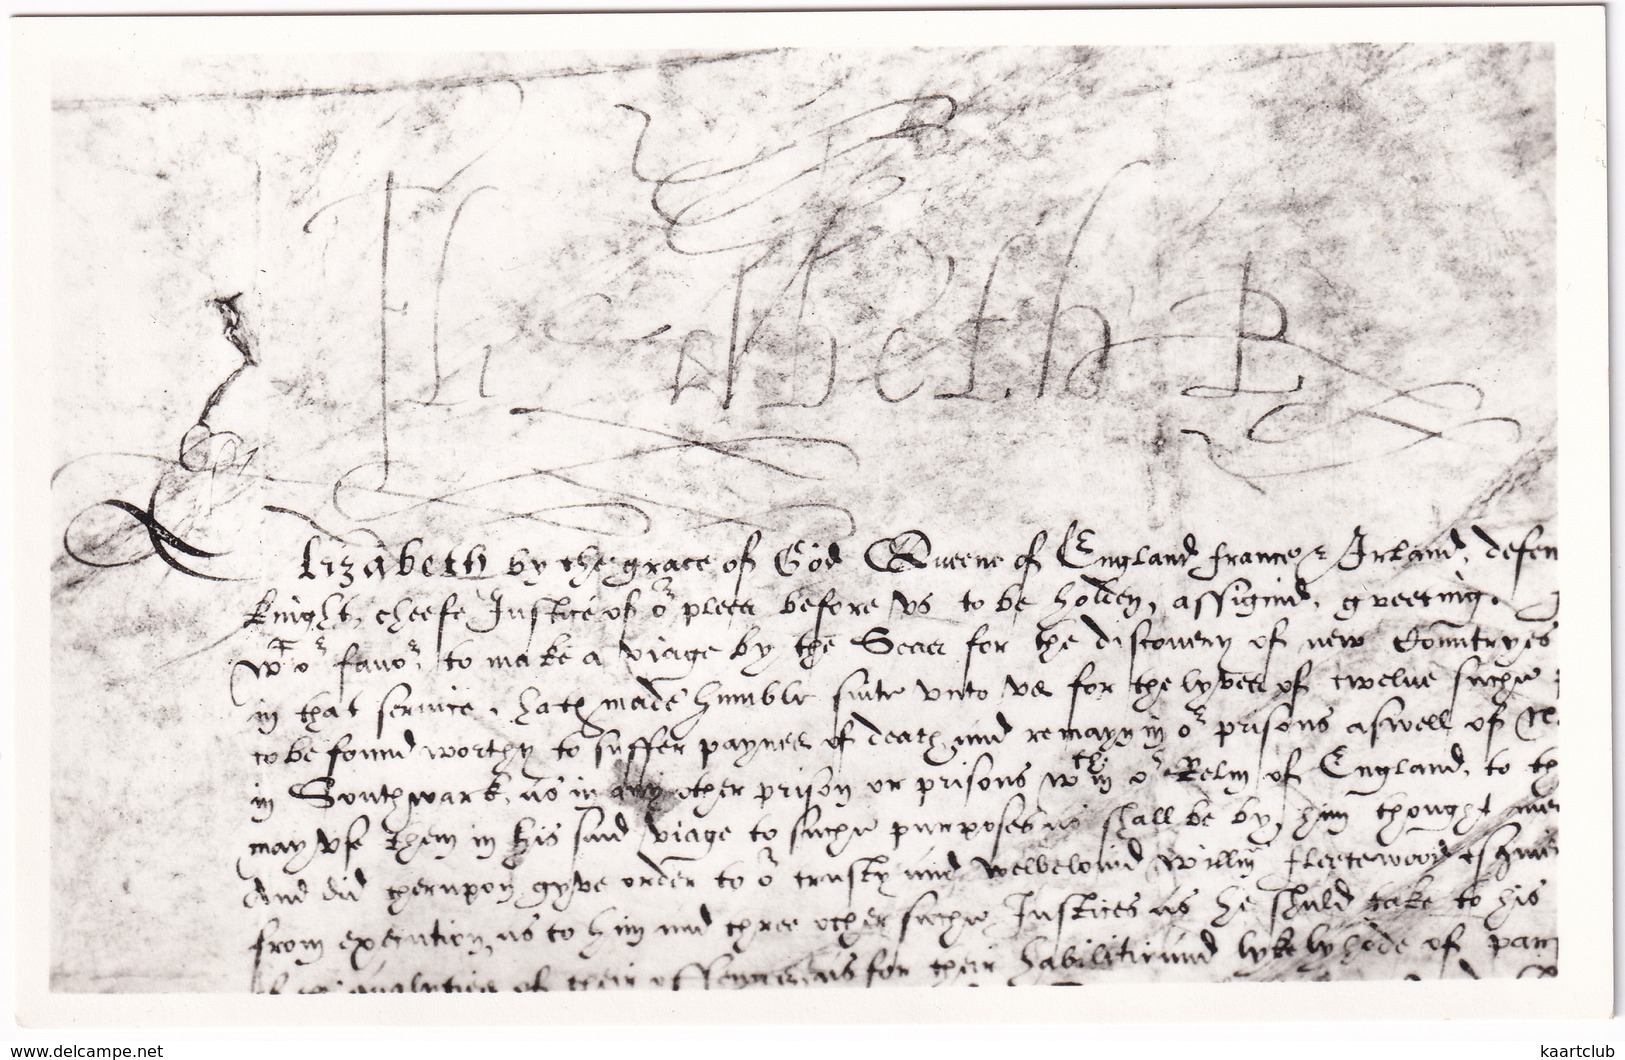 Elizabeth R
Elizabeth by the grace of God Queene of England france & Irland, defen
knight, cheefe Justice of oʳ plees before vs to be holden, assigned, greeting.
wᵗ oʳ favoʳ, to make a viage by the Seas for the discovery of new Countryes
in that service, hath made humble sute vnto vs for the lyves of twelue suche
to be found worthy to suffer paynes of death and remayn in oʳ prisons aswell of
in Southwark, as in any other prison or prisons wᵗʰin oʳ Relm of England, to th
may vse them in his said viage to suche purposes as shall be by him thought mee
And did therupon gyve order to oʳ trusty and welbeloved Willm fleetewood
from execution, as to him and three other suche Justices as he shuld take to his
qualyties of their offences, as for their habilitie and lykelyhode of
www.delcampe.net
kaartclub